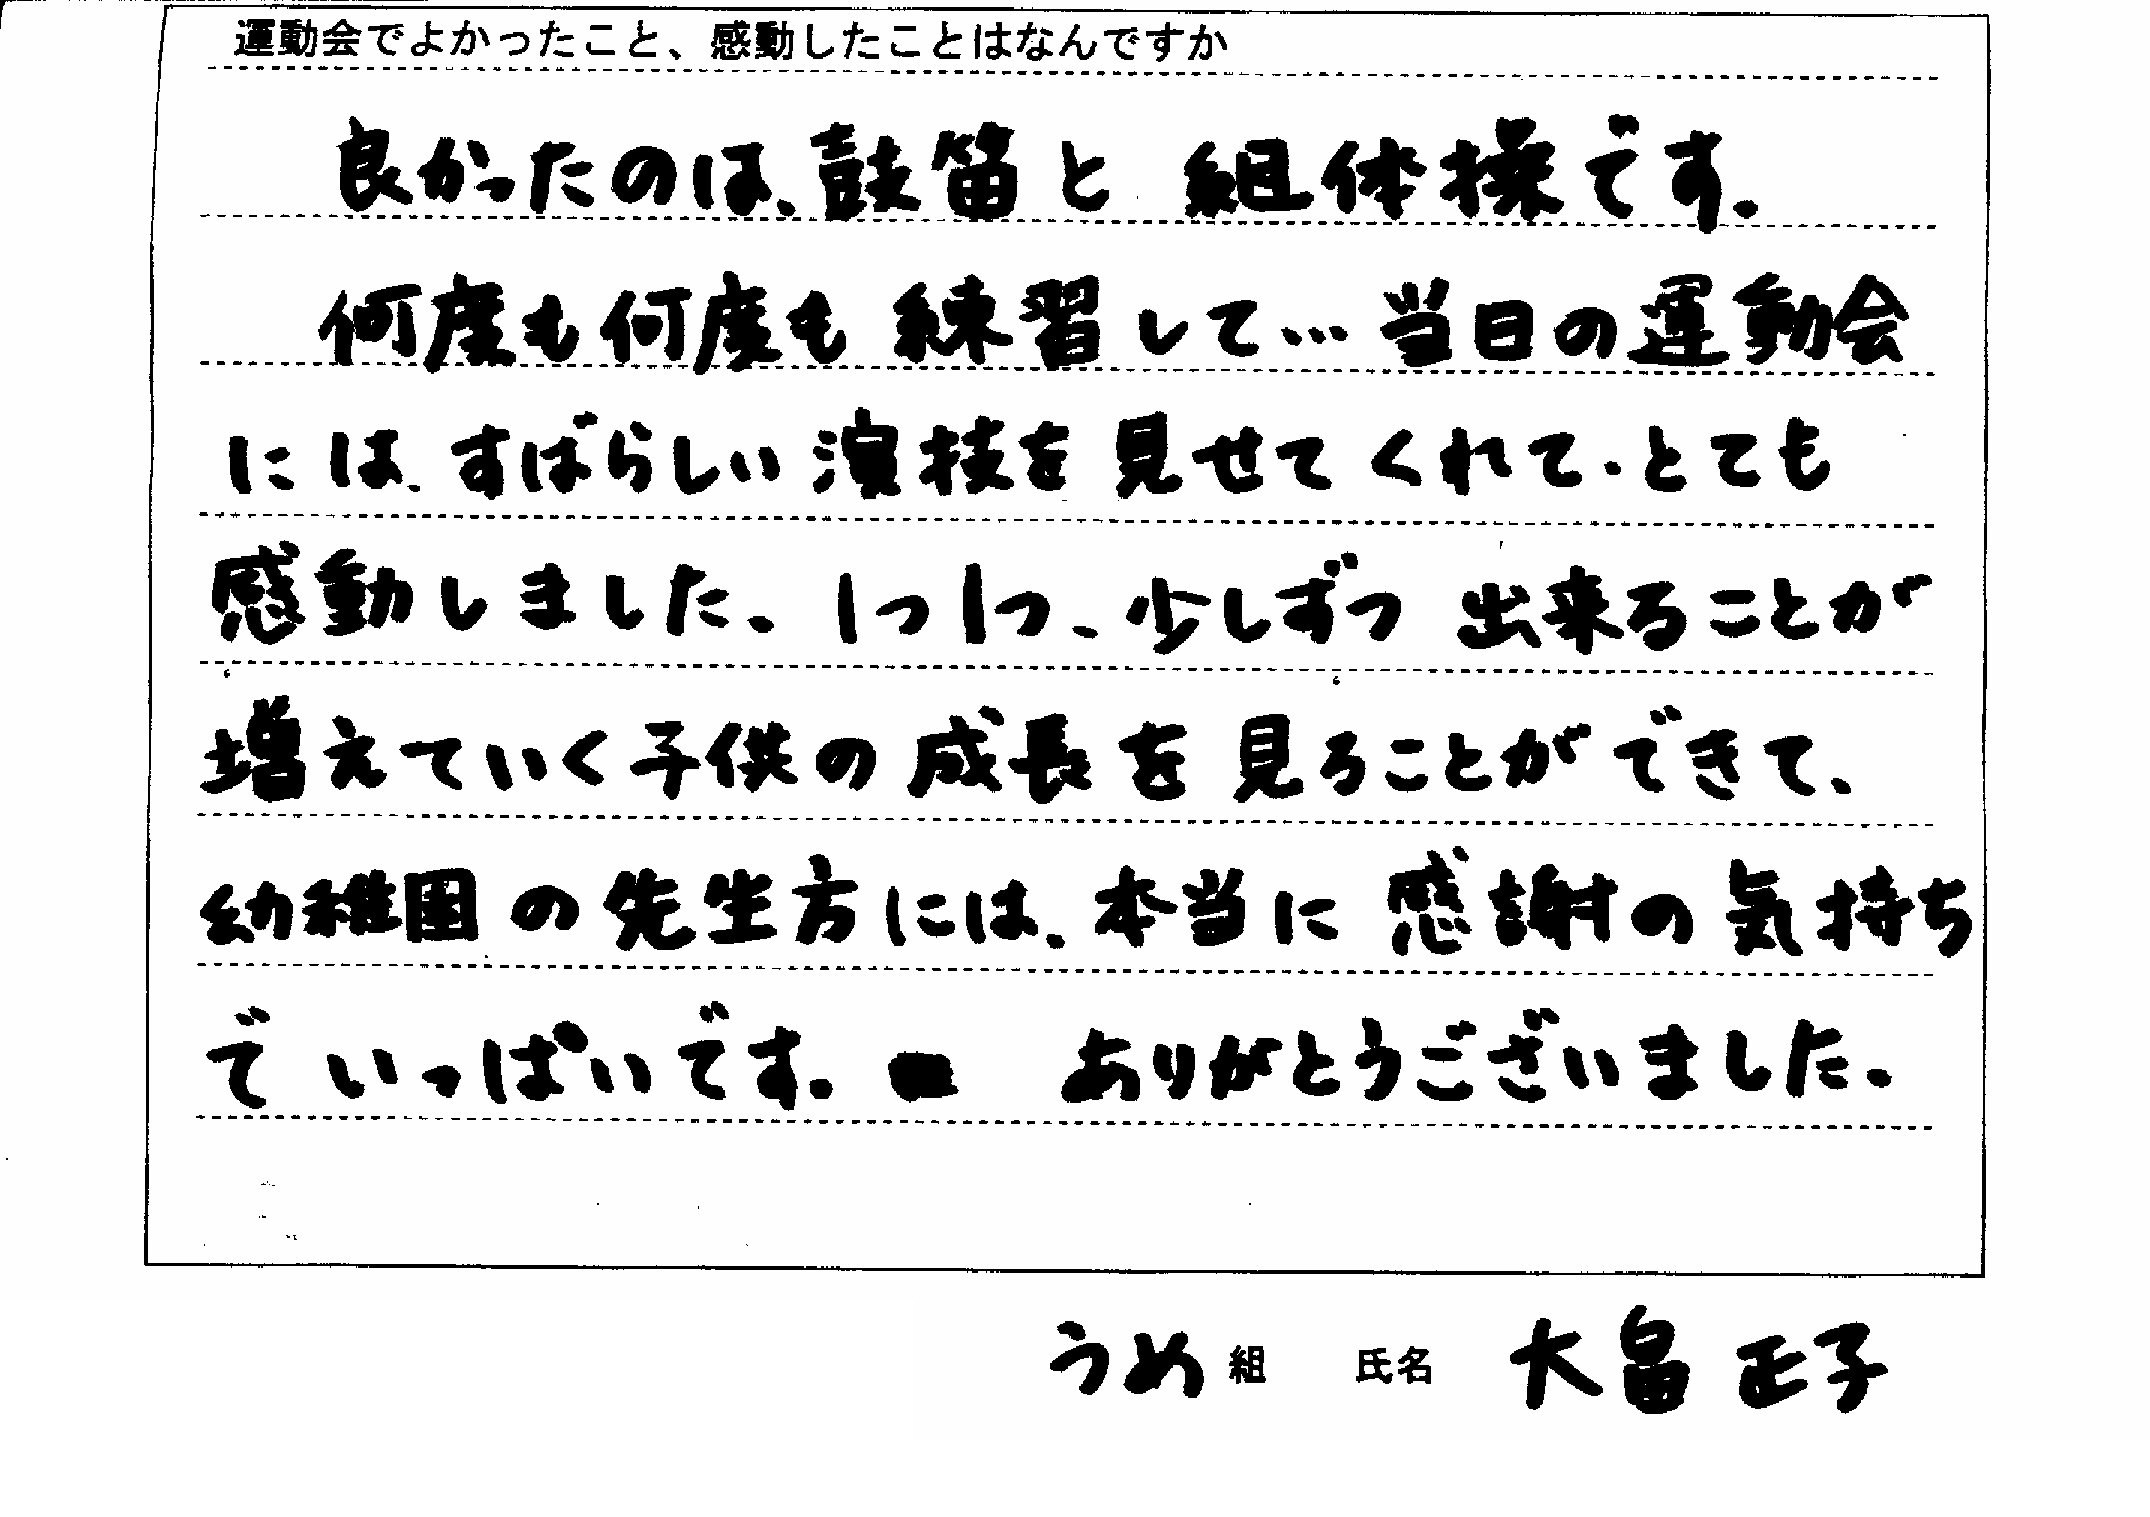 運動会でよかったこと、感動したことはなんですか
良かったのは、鼓笛と 組体操です。
何度も何度も 練習して…当日の運動会
には、すばらしい 演技を 見せてくれて、とても
感動しました。1つ1つ、少しずつ 出来ることが
増えていく子供の成長を 見ることができて、
幼稚園の先生方には、本当に 感謝の気持ち
で いっぱいです。 ありがとうございました。
うめ組 氏名 大畠 正子